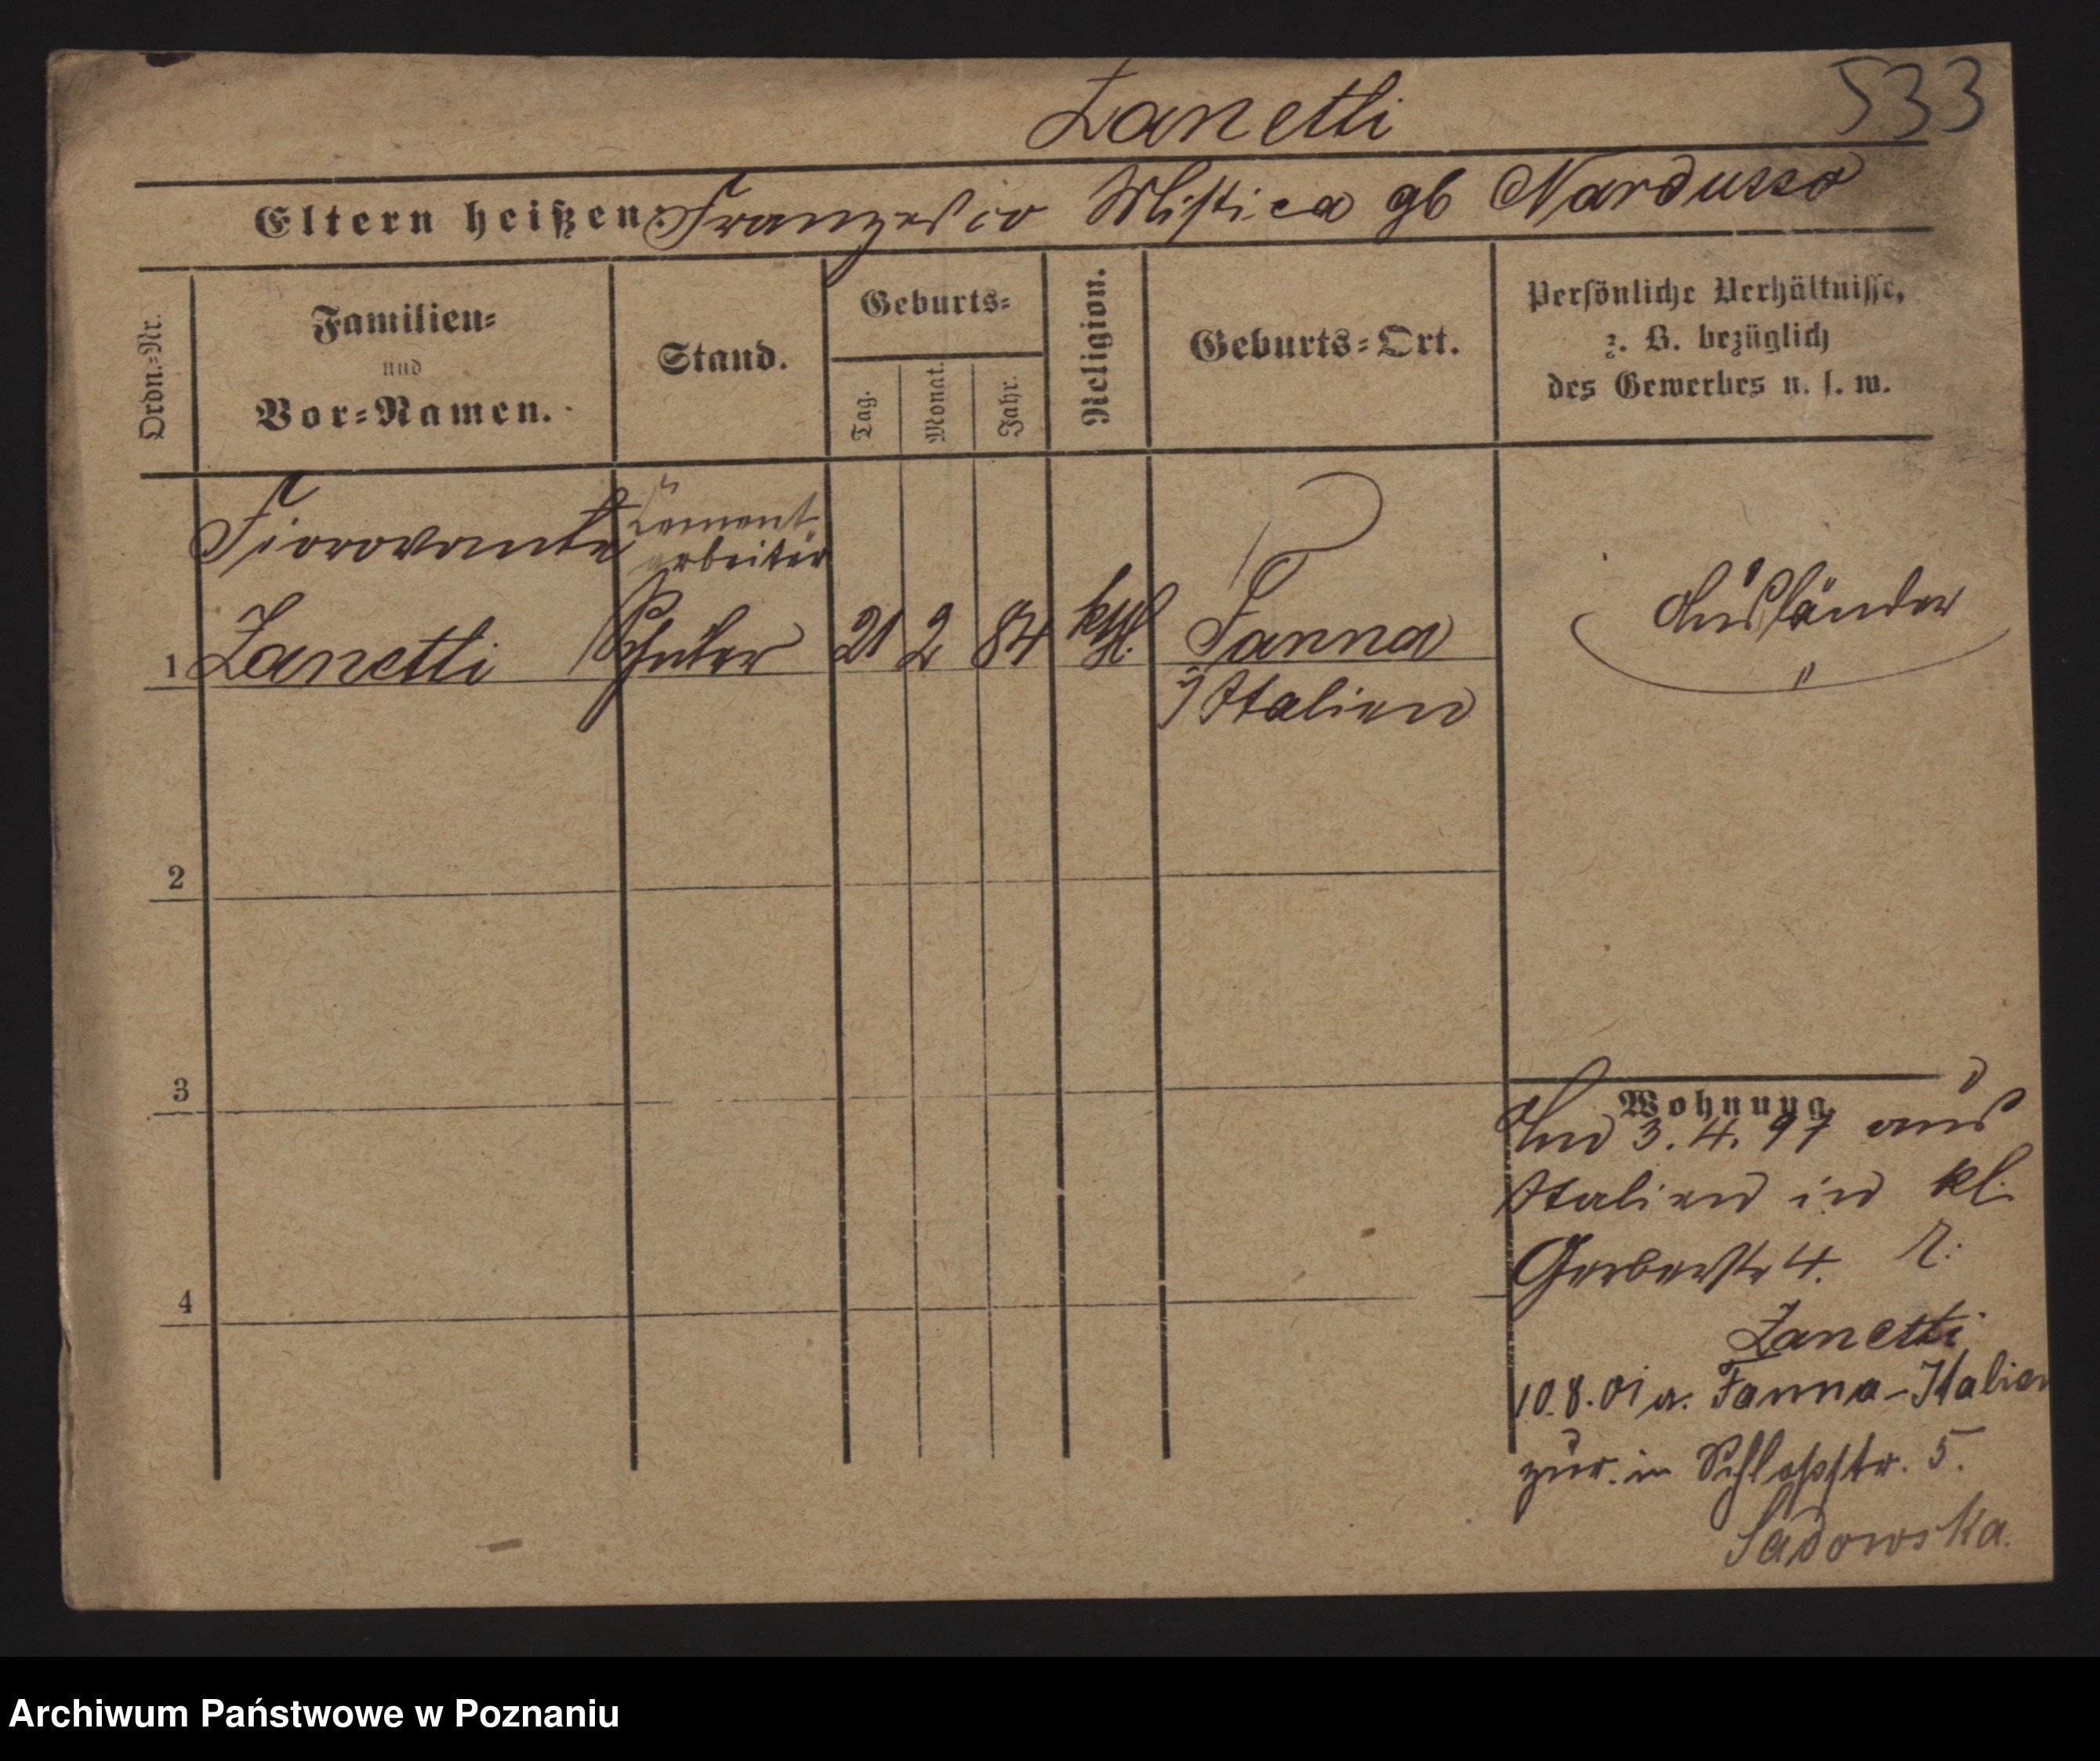 Zanetti
533
Eltern heißen: Franzesco Mistica gb Nardusso
Ordn.-Nr.
Familien-
und
Vor-Namen.
Stand.
Geburts-
Tag.
Monat.
Jahr.
Religion.
Geburts-Ort.
Persönliche Verhältnisse,
z. B. bezüglich
des Gewerbes u. s. w.
Fiorovante
Zement
arbeiter
1 Zanetti Schüler 21 2 84 kth. Fanna
Italien
Ausländer
2
3
4
Wohnung.
Am 3.4.97 aus
Italien in kl.
Gerberstr 4.
Zanetti
10.8.01 a. Fanna-Italien
zur. in Schloßstr. 5.
Sadowska.
Archiwum Państwowe w Poznaniu